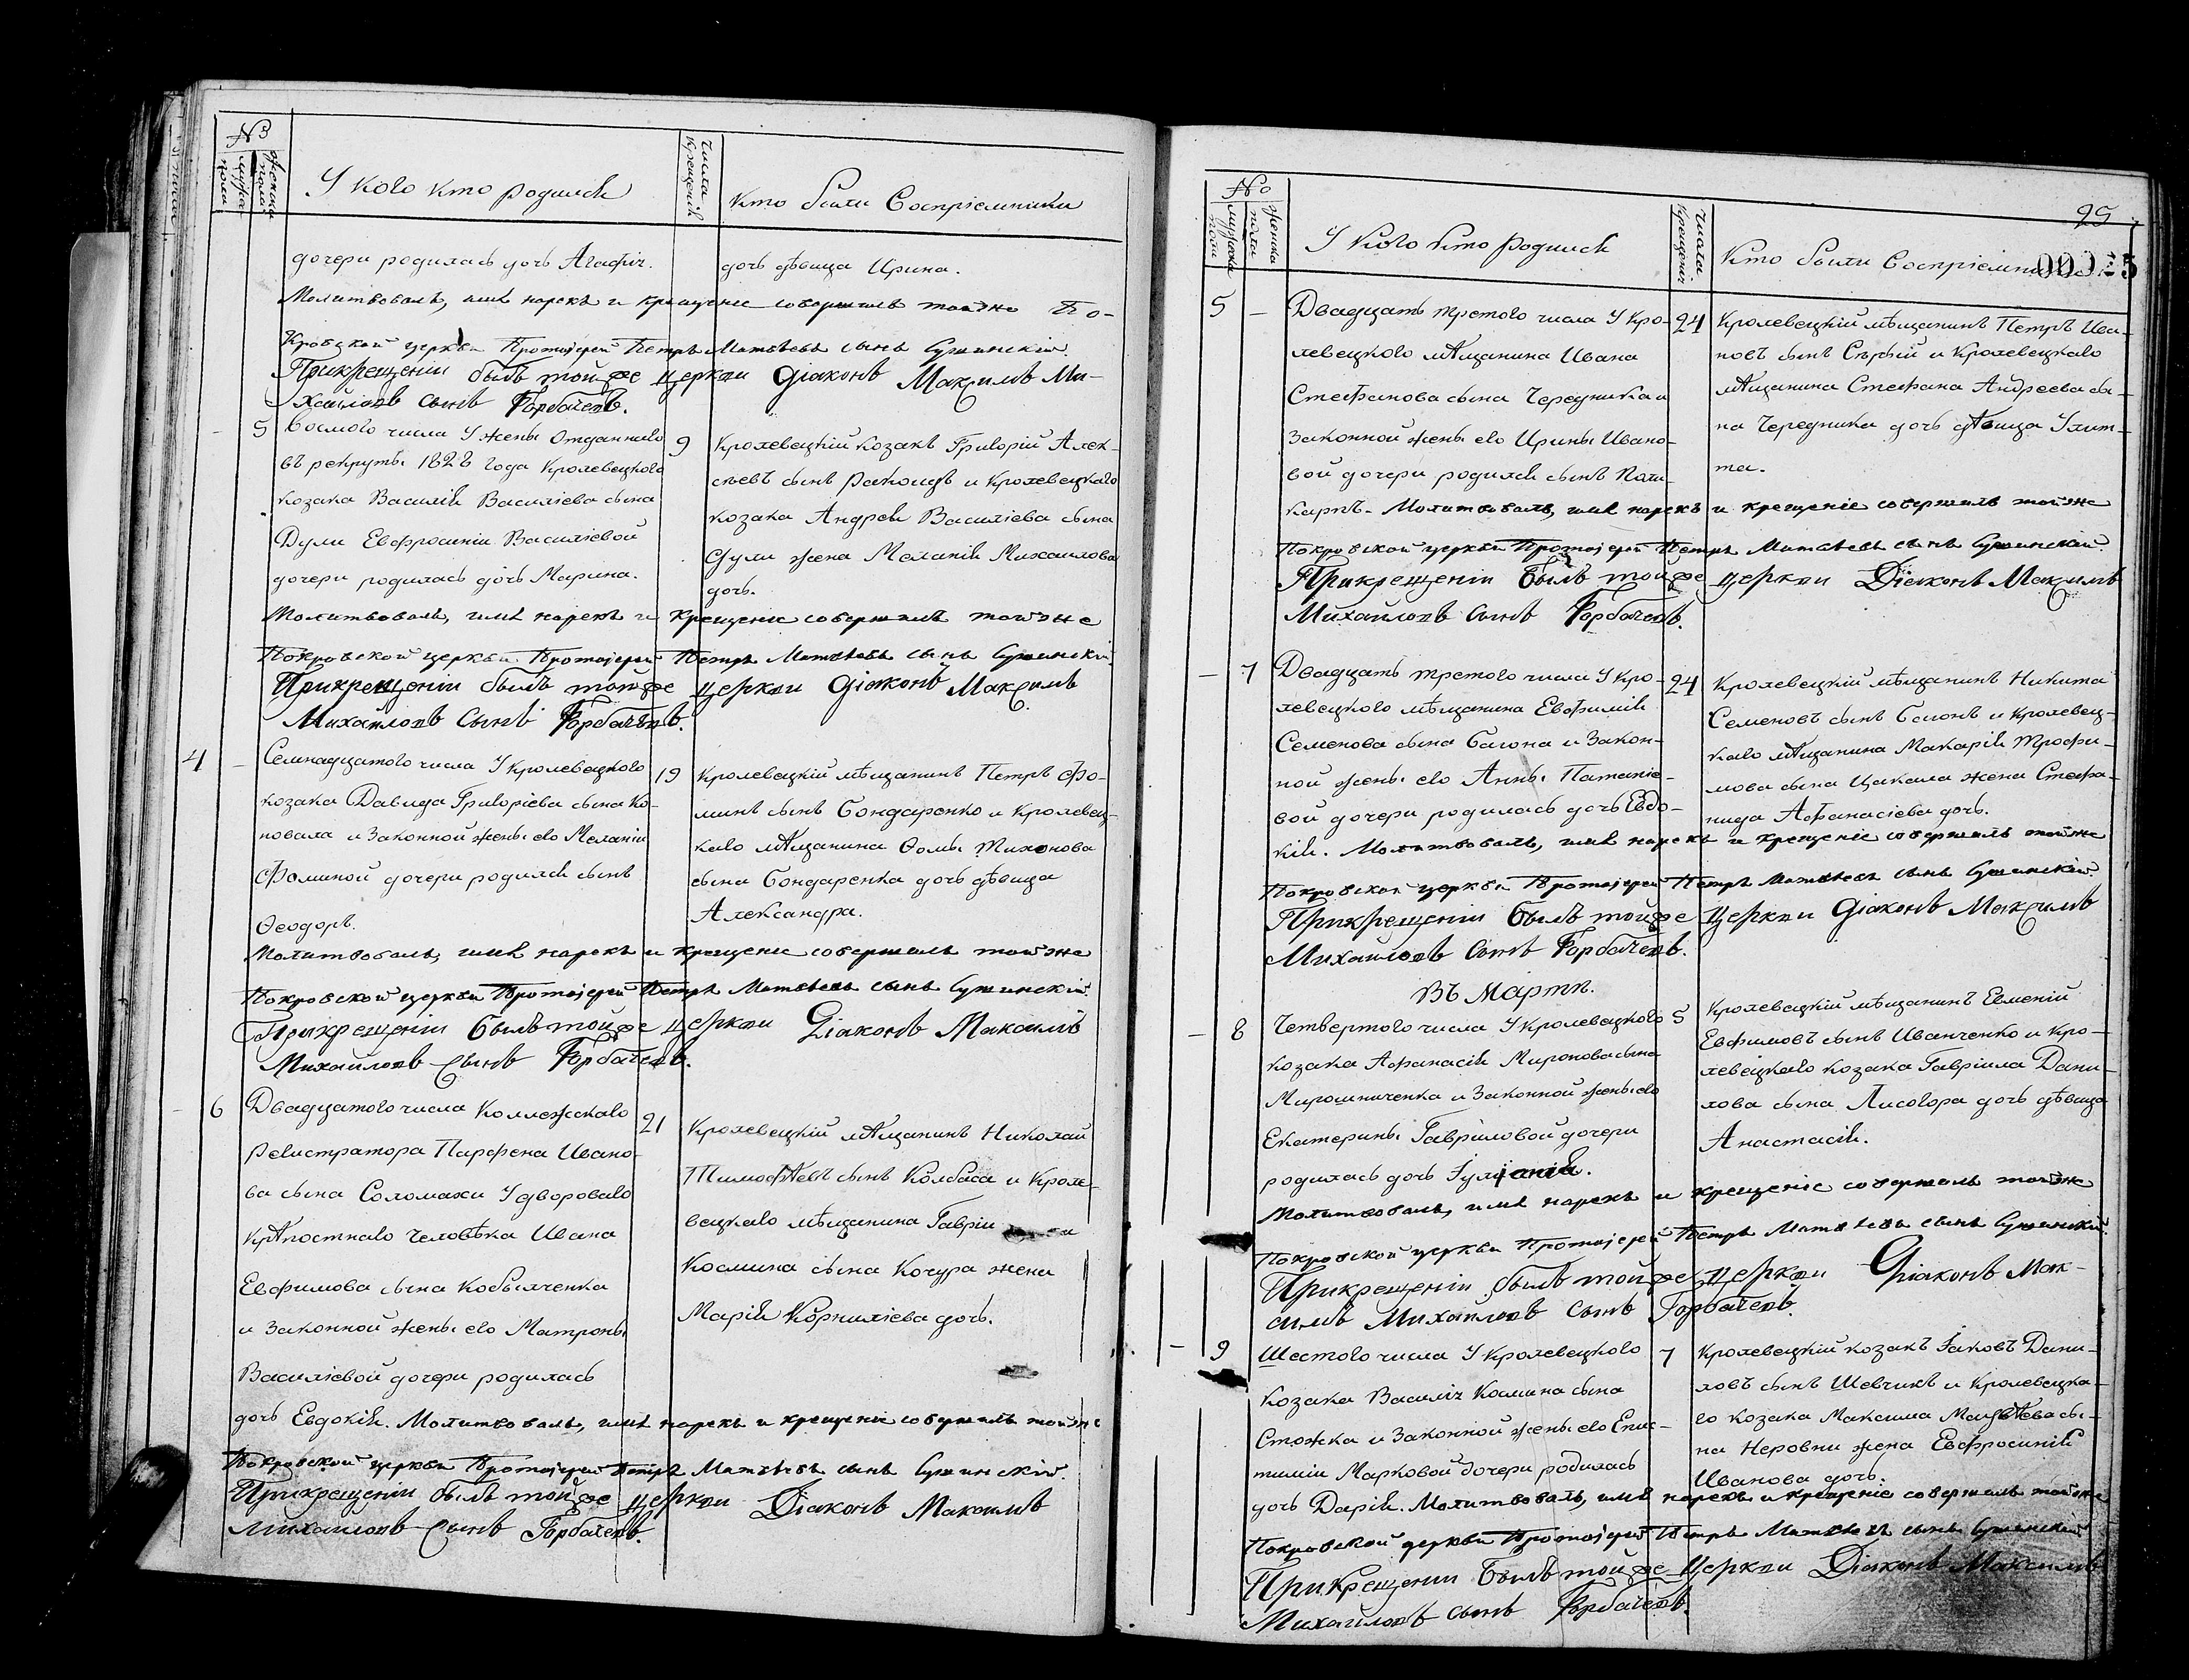 №
мужеска пола
женска пола
У кого кто родился
числа крещенія
кто были Воспріемники
дочери родилась дочь Агафія.
дочь дѣвица Ирина.
Молитвовалъ, имя нарекъ и крещеніе совершилъ тойже По-
кровской церкви Протоіерей Петръ Матвѣевъ сынъ Сушинскій.
При крещеніи былъ тойже церкви Діаконъ Максимъ Ми-
хайловъ сынъ Горбачевъ.
- 5
Восмого числа У жены отданнаго
въ рекруты 1828 года Кролевецкого
козака Василія Василіева сына
Дули Евфросиніи Василіевой
дочери родилась дочь Марина.
9
Кролевецкій козакъ Григорій Алек-
сѣевъ сынъ Ракошдъ и Кролевецкаго
козака Андрея Василіева сына
Дули жена Меланія Михаилова
дочь.
Молитвовалъ, имя нарекъ и крещеніе совершилъ тойже
Покровской церкви Протоіерей Петръ Матвѣевъ сынъ Сушинскій.
При крещеніи былъ тойже церкви Діаконъ Максимъ
Михайловъ сынъ Горбачевъ.
4 -
Семнадцатого числа У кролевецкого
козака Давида Григоріева сына Ко-
новала и Законной жены его Меланіи
Фоминой дочери родился сынъ
Ѳеодоръ.
19
Кролевецкій мѣщанинъ Петръ Фо-
минъ сынъ Бондаренко и Кролевец-
каго мѣщанина Ѳомы Тихонова
сына Бондаренка дочь дѣвица
Александра.
Молитвовалъ, имя нарекъ и крещеніе совершилъ тойже
Покровской церкви Протоіерей Петръ Матвѣевъ сынъ Сушинскій.
При крещеніи былъ тойже церкви Діаконъ Максимъ
Михайловъ сынъ Горбачевъ.
- 6
Двадцатого числа Коллежскаго
Регистратора Парфена Ивано-
ва сына Соломахи У двороваго
крѣпостнаго человѣка Ивана
Евфимова сына Кобылченка
и Законной жены его Матроны
Василіевой дочери родилась
дочь Евдокія.
21
Кролевецкій мѣщанинъ Николай
Тимофѣевъ сынъ Колбаса и Кроле-
вецкаго мѣщанина Гавріи
Космина сына Кочура жена
Марія Корниліева дочь.
Молитвовалъ, имя нарекъ и крещеніе совершилъ тойже
Покровской церкви Протоіерей Петръ Матвѣевъ сынъ Сушинскій.
При крещеніи былъ тойже церкви Діаконъ Максимъ
Михайловъ сынъ Горбачевъ.
25
№
мужеска пола
женска пола
У кого кто родился
числа крещенія
Кто были Воспріемники
5 -
Двадцать третого числа У Кро-
левецкого мѣщанина Ивана
Стефанова сына Чередника и
Законной жены его Ирины Ивано-
вой дочери родился сынъ Поли-
карпъ.
24
Кролевецкій мѣщанинъ Петръ Ива-
новъ сынъ Сѣрый и Кролевецкаго
мѣщанина Стефана Андреева сы-
на Чередника дочь дѣвица Улит-
та.
Молитвовалъ, имя нарекъ и крещеніе совершилъ тойже
Покровской церкви Протоіерей Петръ Матвѣевъ сынъ Сушинскій.
При крещеніи былъ тойже церкви Діаконъ Максимъ
Михайловъ сынъ Горбачевъ.
- 7
Двадцать третого числа У Кро-
левецкого мѣщанина Евфимія
Семенова сына Багона и Закон-
ной жены его Анны Потапіе-
вой дочери родилась дочь Евдо-
кія.
24
Кролевецкій мѣщанинъ Никита
Семеновъ сынъ Багонъ и Кролевец-
каго мѣщанина Макарія Трофи-
мова сына Цакала жена Стефа-
нида Афанасіева дочь.
Молитвовалъ, имя нарекъ и крещеніе совершилъ тойже
Покровской церкви Протоіерей Петръ Матвѣевъ сынъ Сушинскій.
При крещеніи былъ тойже церкви Діаконъ Максимъ
Михайловъ сынъ Горбачевъ.
Въ Мартѣ.
- 8
Четвертого числа У Кролевецкого
козака Афанасія Миронова сына
Мирошниченка и Законной жены его
Екатерины Гавріловой дочери
родилась дочь Іуліанія.
5
Кролевецкій мѣщанинъ Евменій
Евфимовъ сынъ Иванченко и Кро-
левецкаго козака Гавріила Дани-
лова сына Лисогора дочь дѣвица
Анастасія.
Молитвовалъ, имя нарекъ и крещеніе совершилъ тойже
Покровской церкви Протоіерей Петръ Матвѣевъ сынъ Сушинскій.
При крещеніи былъ тойже церкви Діаконъ Мак-
симъ Михайловъ сынъ Горбачевъ.
- 9
Шестого числа У Кролевецкого
козака Василія Космина сына
Стожка и Законной жены его Епис-
тиміи Марковой дочери родилась
дочь Дарія.
7
Кролевецкій козакъ Іаковъ Дани-
ловъ сынъ Шевчикъ и Кролевецка-
го козака Максима Матвѣева сы-
на Неровни жена Евфросинія
Иванова дочь.
Молитвовалъ, имя нарекъ и крещеніе совершилъ тойже
Покровской церкви Протоіерей Петръ Матвѣевъ сынъ Сушинскій
При крещеніи былъ тойже церкви Діаконъ Максимъ
Михайловъ сынъ Горбачевъ.